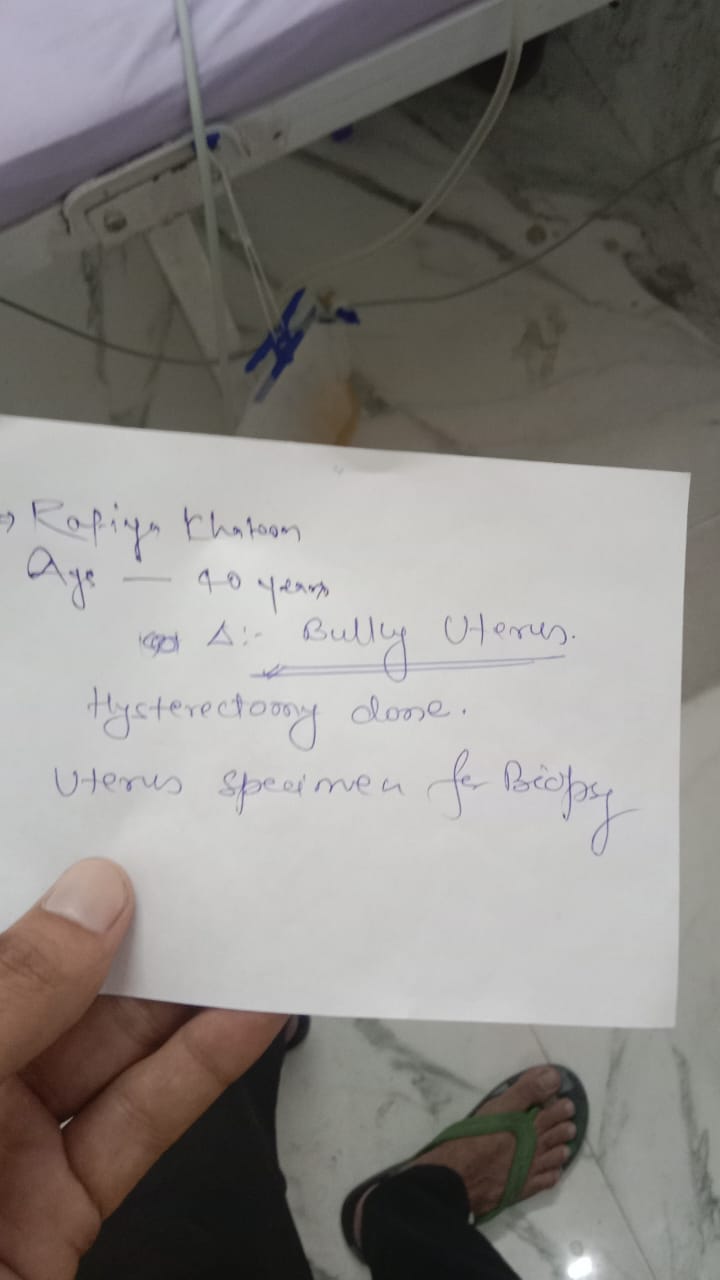 → Rafiya Khatoon
Age — 40 years
Δ:- Bulky Uterus.
Hysterectomy done.
Uterus specimen for Biopsy